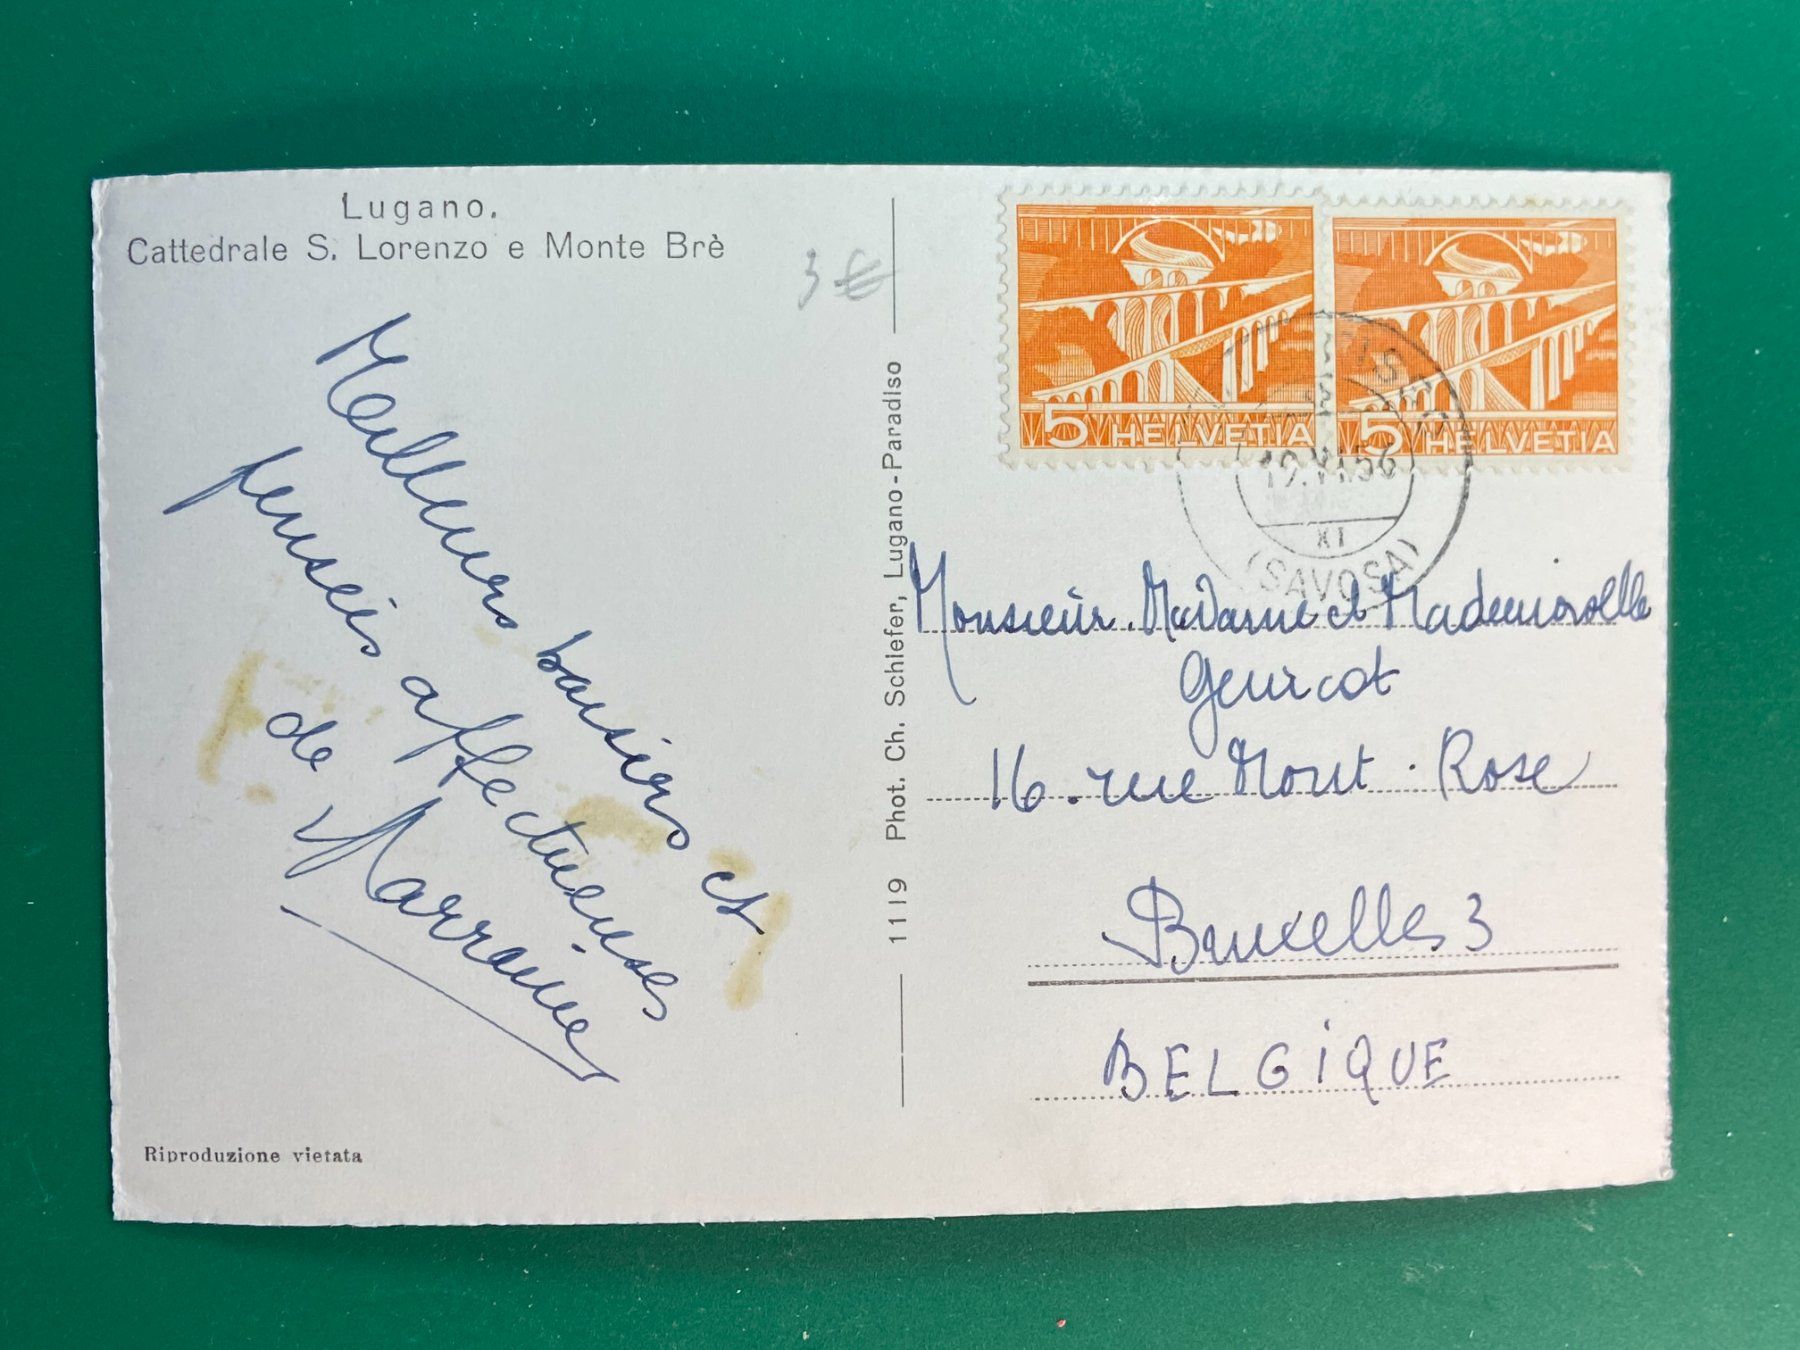 Lugano.
Cattedrale S. Lorenzo e Monte Brè
3 €
Meilleurs baisers et
pensées affectueuses
de Marraine
Riproduzione vietata
1119 Phot. Ch. Schiefer, Lugano-Paradiso
5 HELVETIA
5 HELVETIA
19.VI.56
XI
(SAVOSA)
Monsieur. Madame et Mademoiselle
Geuricot
16. rue Mont. Rose
Bruxelles 3
BELGIQUE